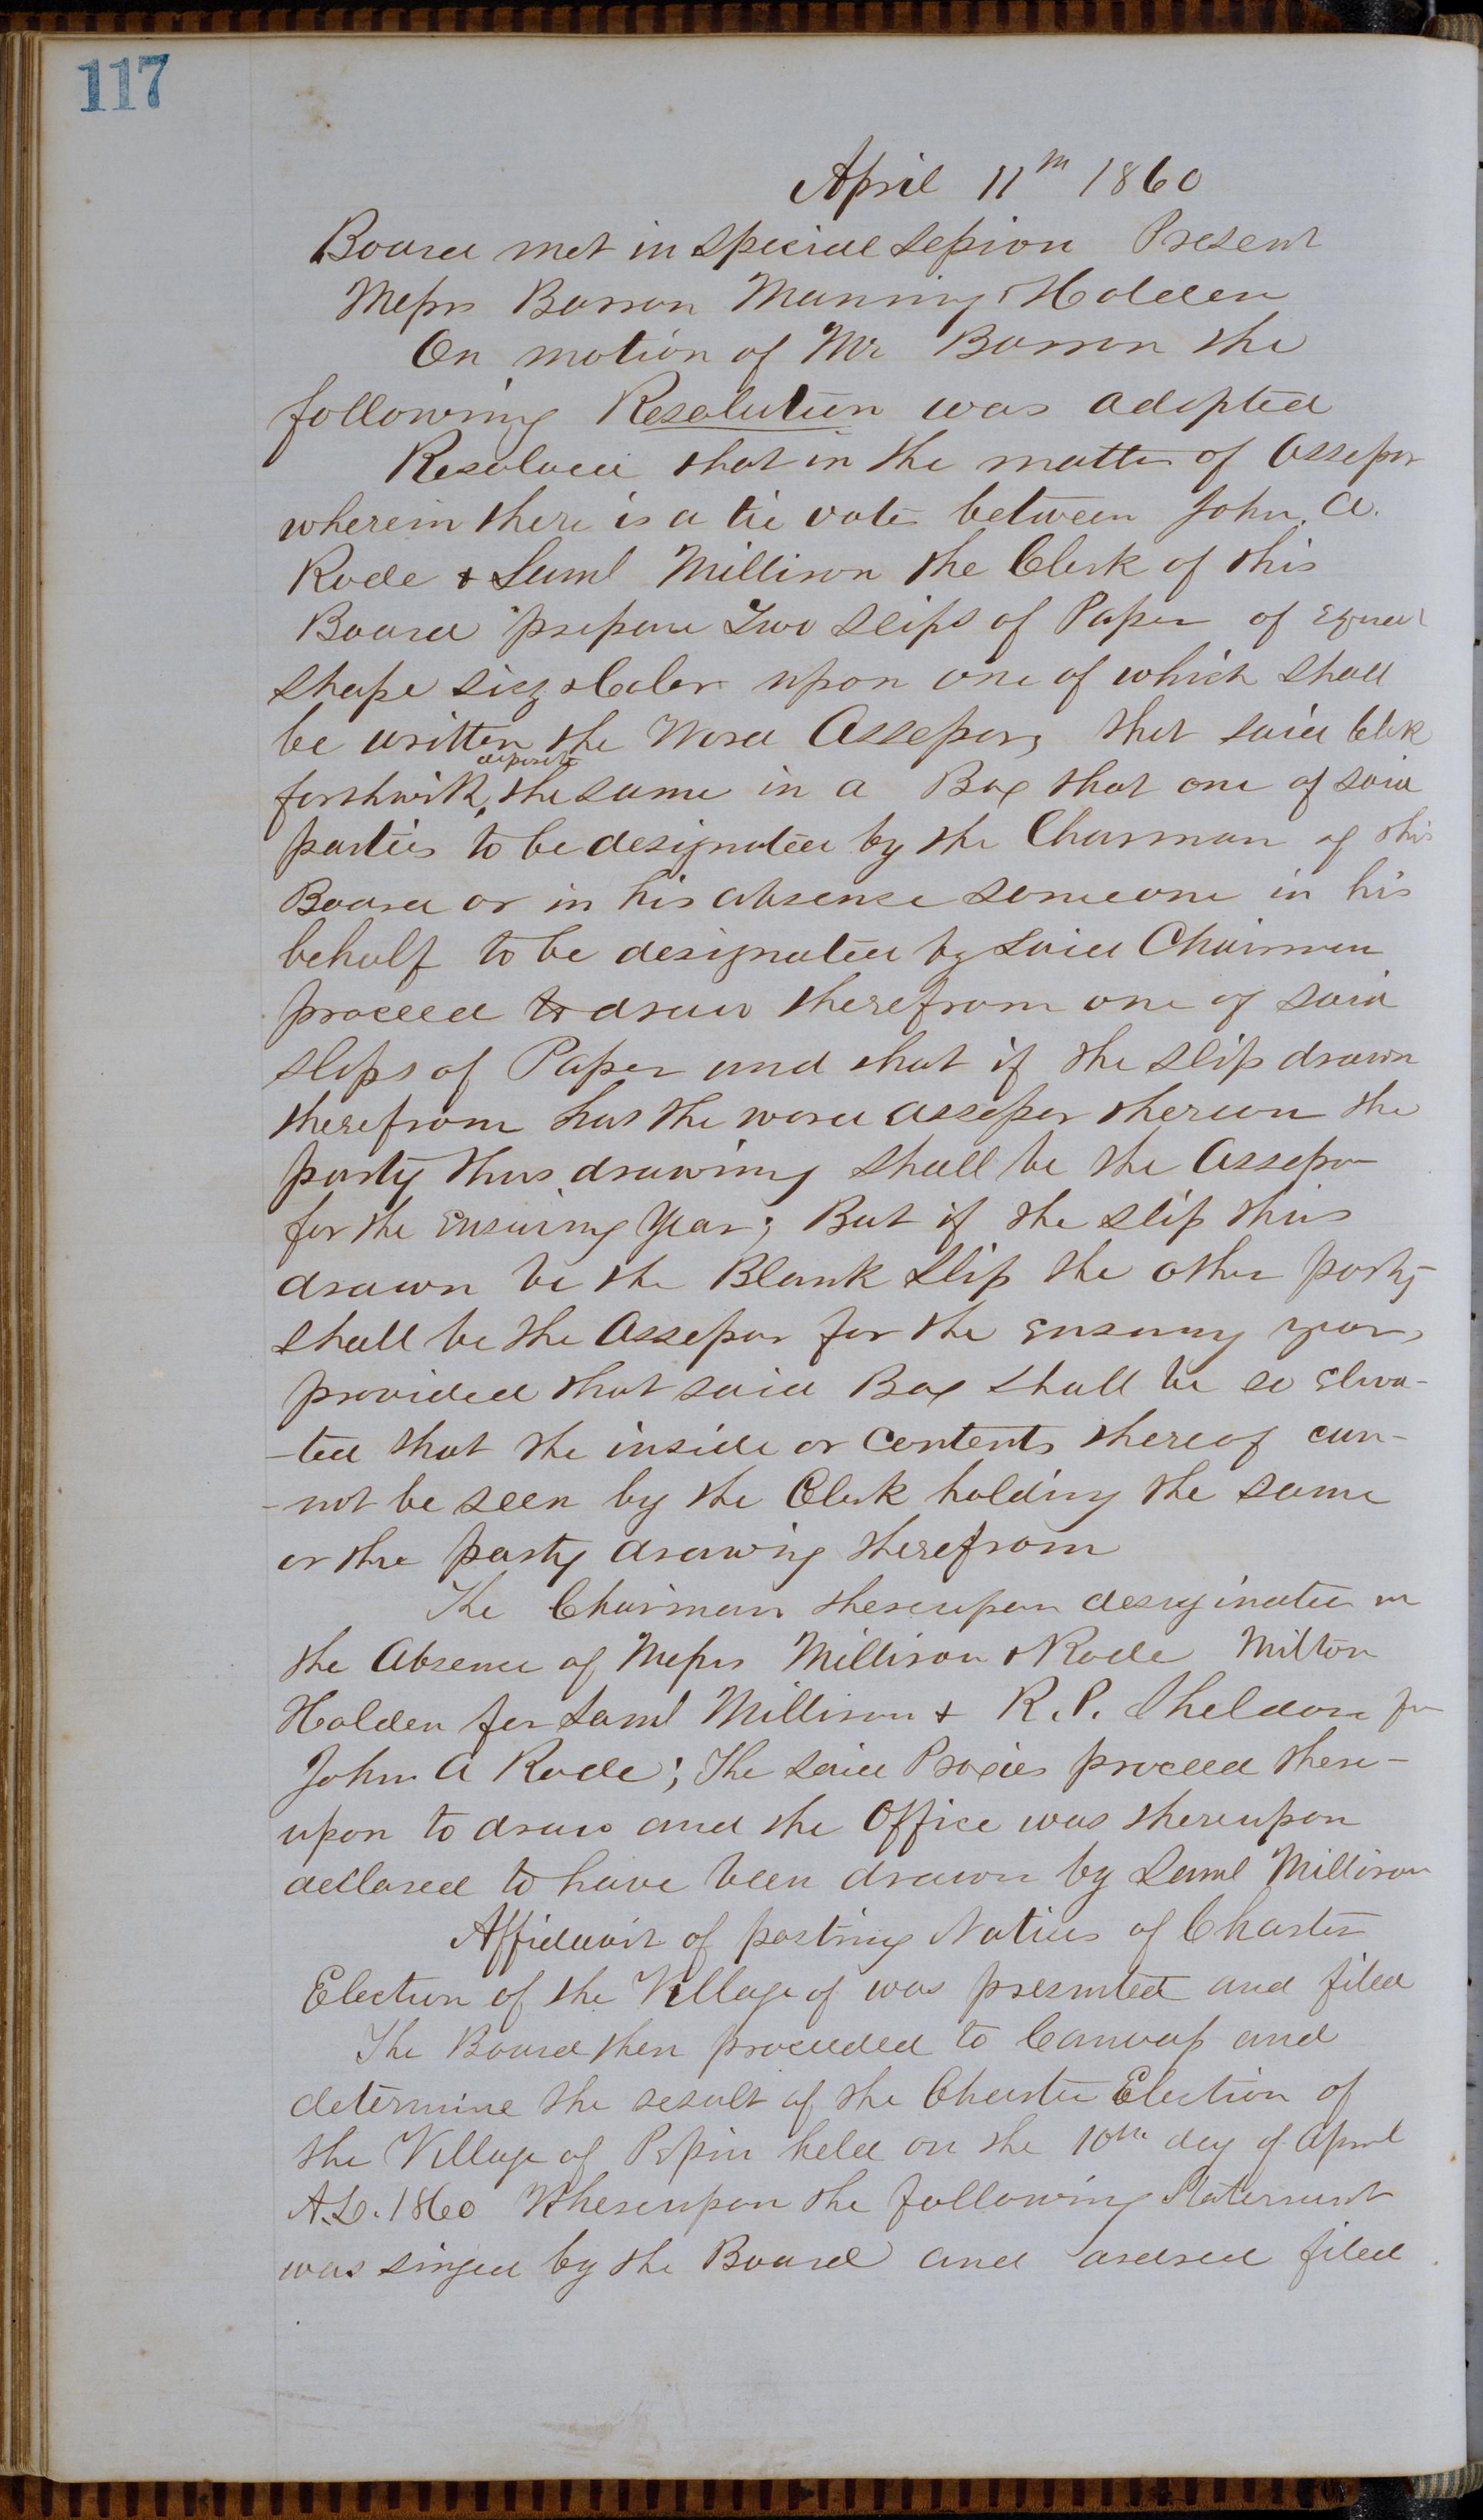 117
April 11th 1860
Board met in special session Present
Messrs Barron Manning & Holden
On motion of Mr Barron the
following Resolution was adopted
Resolved that in the matter of Assessor
wherein there is a tie vote between John. A.
Rode & Saml Millison the Clerk of this
Board prepare Two slips of Paper of equal
shape size & Color upon one of which shall
be written the Word Assessor, that said Clerk
forthwith deposite the same in a Box that one of said
parties to be designated by the Charman of this
Board or in his absence someone in his
behalf to be designated by said Chairman
proceed to draw therefrom one of said
slips of Paper and that if the slip drawn
therefrom has the word assessor thereon the
party thus drawing shall be the Assessor
for the Ensuing Year; But if the slip thus
drawn be the Blank Slip the other party
shall be the Assessor for the ensuing year,
provided that said Box shall be so eleva-
-ted that the inside or Contents thereof can-
-not be seen by the Clerk holding the same
or the party drawing therefrom
The Chairman thereupon designated in
the Absence of Messrs Millison & Rode Milton
Holden for Saml Millison & R. P. Sheldon for
John A Rode; The said Proxies proceed there-
upon to draw and the Office was thereupon
declared to have been drawn by Saml Millison
Affidavit of posting Notices of Charter
Election of the Village of was presented and filed
The Board then proceeded to Canvass and
determine the result of the Charter Election of
the Village of Pepin held on the 10th day of April
A.D. 1860 Whereupon the following Statement
was singed by the Board and ordered filed